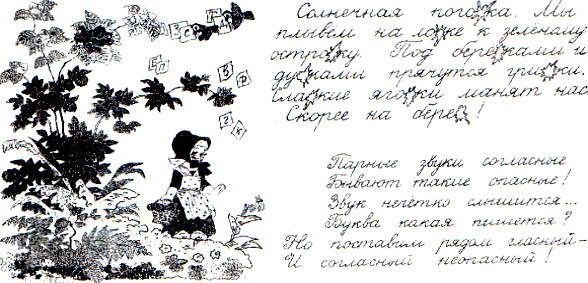 Солнечная пого*ка. Мы
плывем на ло*ке к зелёному
остро*ку. Под берё*ками и
ду*ками прячутся гри*ки.
Сла*кие яго*ки манят нас.
Скорее на бере*!
Парные звуки согласные
Бывают такие опасные!
Звук нечетко слышится...
Буква какая пишется?
Но поставим рядом гласный -
И согласный неопасный!